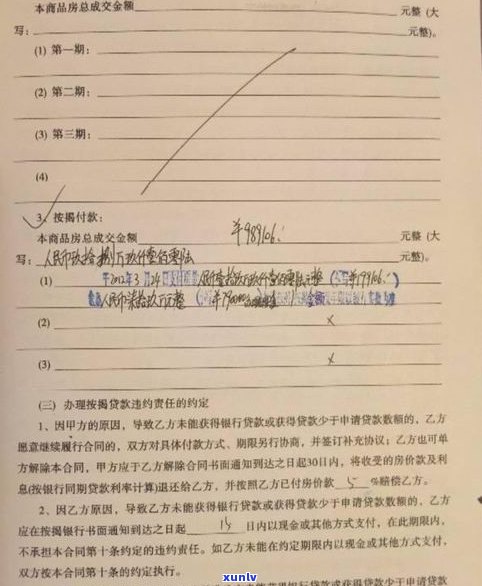 本商品房总成交金额 元整 (大
写: 元整)。
(1) 第一期:
(2) 第二期:
(3) 第三期:
(4)
3、按揭付款:
本商品房总成交金额 ¥989106. 元整 (大
写: 人民币玖拾捌万玖仟壹佰零陆 元整)。
(1) 于2012年3月24日支付首款人民币壹拾玖万玖仟壹佰零陆元整 (小写¥199106.)
人民币柒拾玖万元整
(2) ×
(3) ×
(三) 办理按揭贷款违约责任的约定
1、因甲方的原因, 导致乙方未能获得银行贷款或获得贷款少于申请贷款数额的, 乙方
愿意继续履行合同的, 双方对具体付款方式、期限另行协商, 并签订补充协议; 乙方也可单
方解除本合同, 甲方应于乙方解除合同书面通知到达之日起30日内, 将收受的房价款及利
息(按银行同期贷款利率计算)退还给乙方, 并按照乙方已付房价款 5 %赔偿乙方。
2、因乙方原因, 导致乙方未能获得银行贷款或获得贷款少于申请贷款数额的, 乙方
应在按揭银行书面通知到达之日起 15 日内以现金或其他方式支付, 在此期限内,
不承担本合同第十条约定的违约责任。如乙方未能在约定期限内以现金或其他方式支付,
双方按本合同第十条的约定执行。
得银行贷款或获得贷款少于申请贷款
xunlv